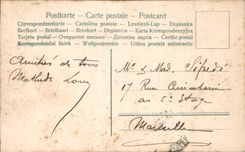 Postkarte - Carte postale - Postcard
Correspondenzkarte - Cartolina postale - Levelező-Lap - Dopisnice
Brefkort - Briefkaart - Brevkort - Dopisnica - Карта Корреспонденцiйна
Tarjeta postal - Открытое письмо - Дописна карта - Cartão postal
Korespondenční lístek - Weltpostverein - Union postale universelle
Amitiés de tous
Mathilde
Mr & Mad.
17 Rue
au 5e Etage
Marseille